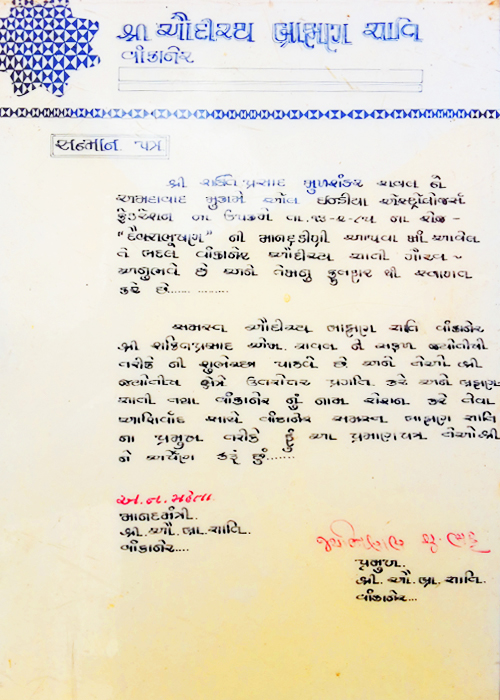 શ્રી ઔદીચ્ય બ્રાહ્મણ જ્ઞાતિ
વાંકાનેર
સન્માન પત્ર
શ્રી શક્તિપ્રસાદ મુળશંકર રાવલ ને
અમદાવાદ મુકામે ઓલ ઇન્ડીયા એસ્ટ્રોલોજર્સ
ફેડરેશન ના ઉપક્રમે તા. ના રોજ -
"દૈવજ્ઞભૂષણ" ની માનદ્ડીગ્રી આપવા માં આવેલ
તે બદલ વાંકાનેર ઔદીચ્ય જ્ઞાતી ગૌરવ -
અનુભવે છે અને તેમનુ ફુલહાર થી સ્વાગત
કરે છે...... .........
સમસ્ત ઔદીચ્ય બ્રાહ્મણ જ્ઞાતિ વાંકાનેર
શ્રી શક્તિપ્રસાદ એમ. રાવલ ને સફળ જ્યોતીષી
તરીકે ની શુભેચ્છા પાઠવે છે અને તેઓ શ્રી
જ્યોતીષ ક્ષેત્રે ઉતરોતર પ્રગતિ કરે અને બ્રહ્મણ
જ્ઞાતી તથા વાંકાનેર નું નામ રોશન કરે તેવા
આશિર્વાદ સાથે વાંકાનેર સમસ્ત બ્રાહ્મણ જ્ઞાતિ
ના પ્રમુખ તરીકે હું આ પ્રમાણપત્ર તેઓશ્રી
ને અર્પણ કરૂં છું.......
અ. ન. મહેતા
માનદમંત્રી.
શ્રી. ઔ. બ્રા. જ્ઞાતિ.
વાંકાનેર....
જુ. ભટ્ટ
પ્રમુખ.
શ્રી. ઔ. બ્રા. જ્ઞાતિ.
વાંકાનેર...